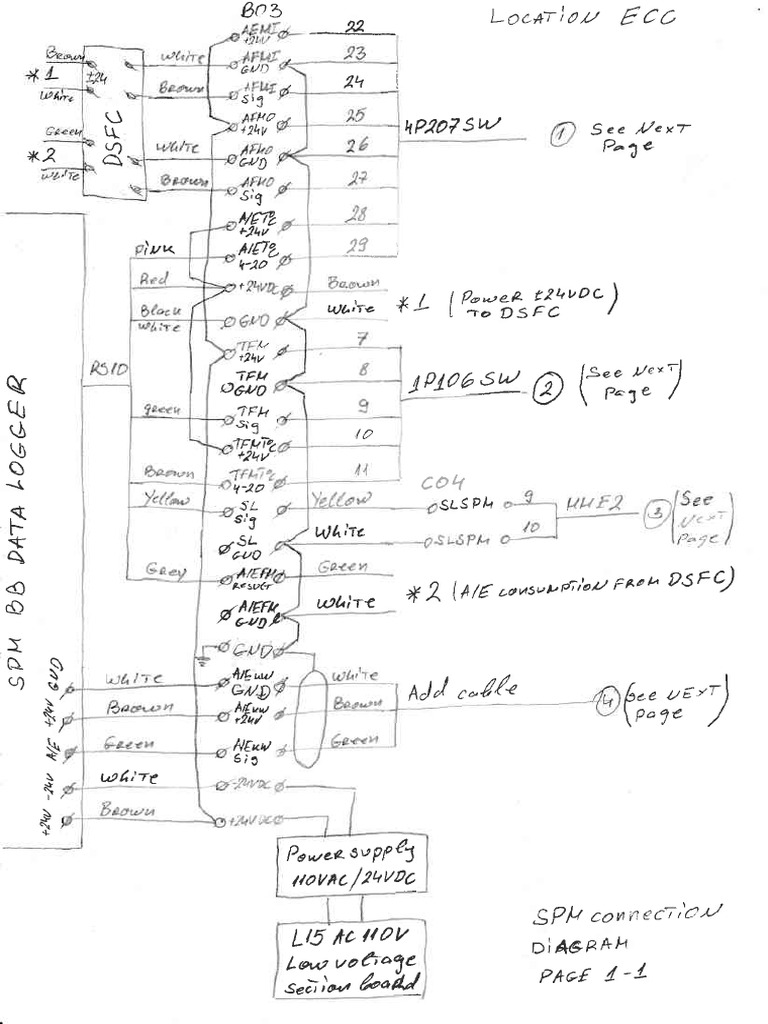 B03
LOCATION ECC
AEMI +24V 22
White AFMI GND 23
Brown AFMI Sig 24
AFMO +24V 25
White AFMO GND 26
Brown AFMO Sig 27
A/ET°C +24V 28
PINK A/ET°C 4-20 29
Brown
*1
White
±24
DSFC
Green
*2
White
4P207SW
1 See Next
Page
Red +24VDC Brown
Black
White GND White
*1 (Power ±24VDC)
TO DSFC
TFM +24V 7
TFM GND 8
green TFM Sig 9
TFMT°C +24V 10
Brown TFMT°C 4-20 11
1P106SW
2 (See Next
Page)
RS10
SPM BB DATA LOGGER
Yellow SL Sig Yellow
C04
SLSPM 9
SL GND White
SLSPM 10
MMF2
3 (See
Next
Page)
Grey A/EFM RESULT Green
A/EFM GND White
*2 (A/E CONSUMPTION FROM DSFC)
GND
GND White A/EKW GND White
+24V Brown A/EKW +24V Brown
A/E Green A/EKW Sig Green
Add cable
4 (See NEXT
Page)
-24V White -24VDC
+24V Brown +24VDC
Power supply
110VAC/24VDC
L15 AC 110V
Low voltage
section board
SPM connection
DIAGRAM
PAGE 1-1